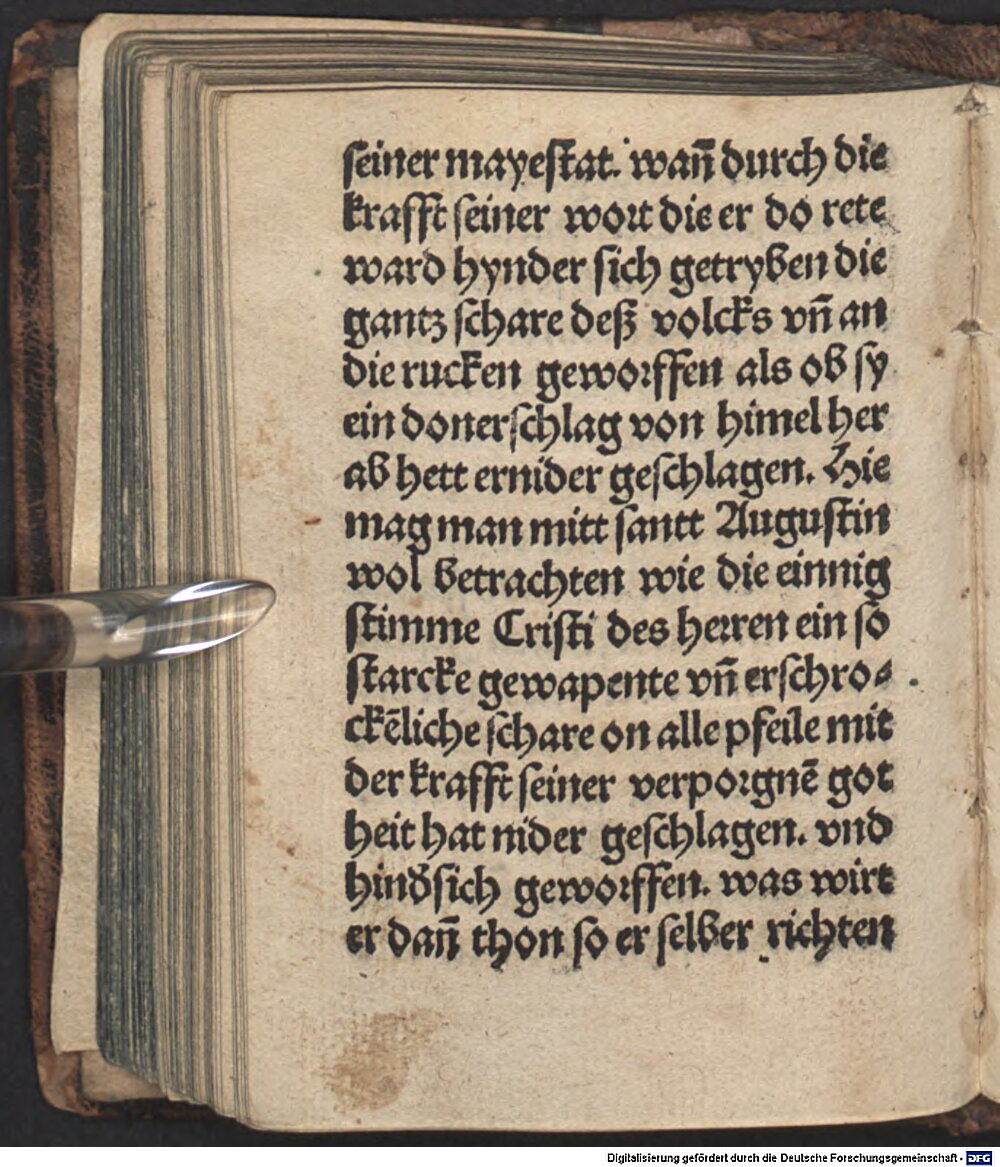 seiner mayestat. wañ durch die
krafft seiner wort die er do rete
ward hynder sich getryben die
gantz schare deß volcks vñ an
die rucken geworffen als ob sy
ein donerschlag von himel her
ab hett ernider geschlagen. Hie
mag man mitt santt Augustin
wol betrachten wie die einnig
stimme Cristi des herren ein so
starcke gewapente vñ erschro⸗
ckēliche schare on alle pfeile mit
der krafft seiner verporgnē got
heit hat nider geschlagen. vnd
hinđsich geworffen. was wirt
er dañ thon so er selber richten
Digitalisierung gefördert durch die Deutsche Forschungsgemeinschaft - DFG